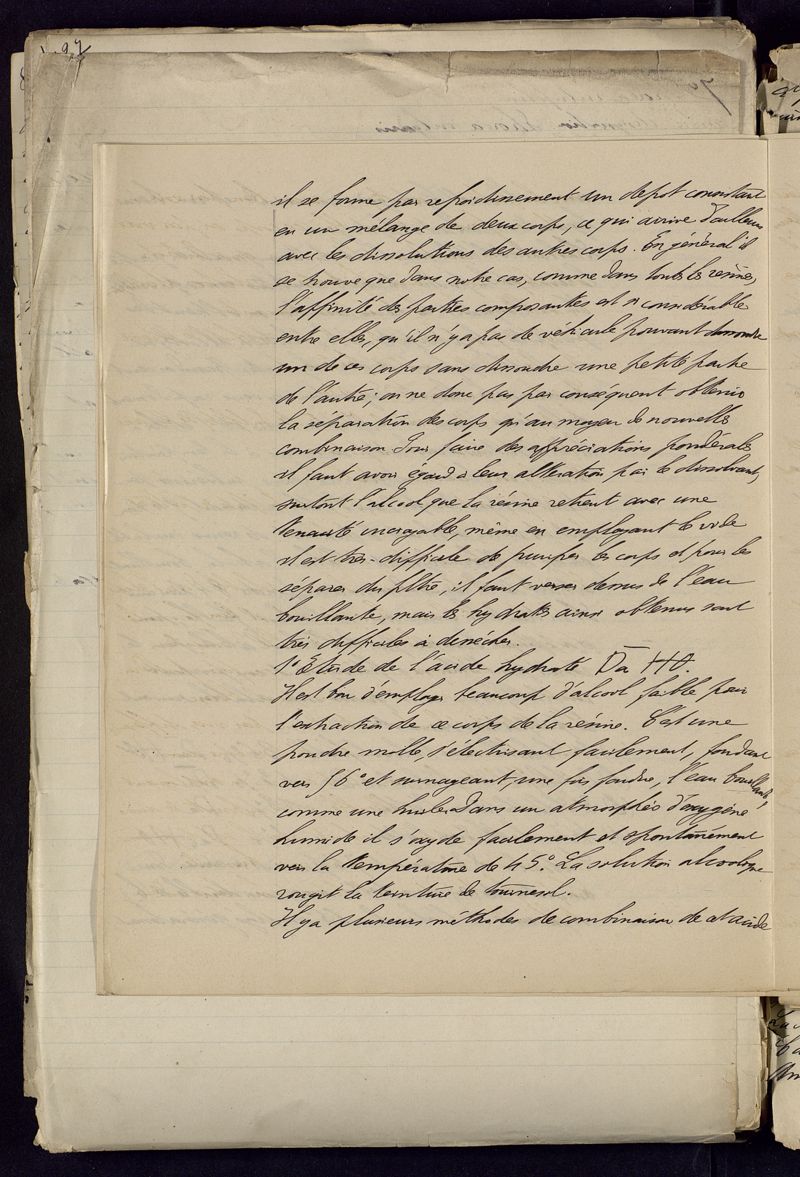 97
il se forme par refroidissement un depot consistant
en un mélange de deux corps, ce qui arrive d'ailleurs
avec les dissolutions des autres corps. En général il
se trouve que dans notre cas, comme dans toutes les résines,
l'affinité des parties composantes est si considérable
entre elles, qu'il n'y a pas de véhicule pouvant dissoudre
un de ces corps sans dissoudre une petite partie
de l'autre; on ne donc pas par conséquent obtenir
la séparation des corps qu'au moyen de nouvelles
combinaison. Pour faire des appréciations pondérales
il faut avoir égard à leur altération par le dissolvant,
surtout l'alcool que la résine retient avec une
tenacité incroyable, même en employant le vide
il est très-difficile de purifier les corps et pour les
séparer du filtre, il faut verser dessus de l'eau
bouillante, mais les hydrates ainsi obtenus sont
très difficiles à dessécher.
1° Étude de l'acide hydraté Da HO.
Il est bon d'employer beaucoup d'alcool faible pour
l'extraction de ce corps de la résine. C'est une
poudre molle, s'électrisant facilement, fondant
vers 56° et surnageant, une fois fondue, l'eau bouillante,
comme une huile. Dans un atmosphère d'oxygène
humide il s'oxyde facilement et spontanément
vers la température de 45°. La solution alcoolique
rougit la teinture de tournesol.
Il y a plusieurs méthodes de combinaison de cet acide